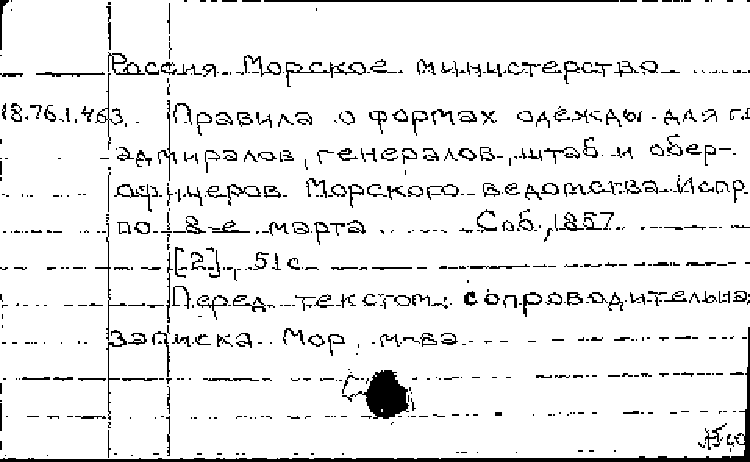 Россия. Морское министерство
18.76.1.463. Правила о формах одежды для г
адмиралов, генералов, штаб и обер-
офицеров Морского ведомства Испр
по 8-е марта Спб., 1857.
[2], 51 с
Перед текстом: сопроводительна
записка Мор. м-ва